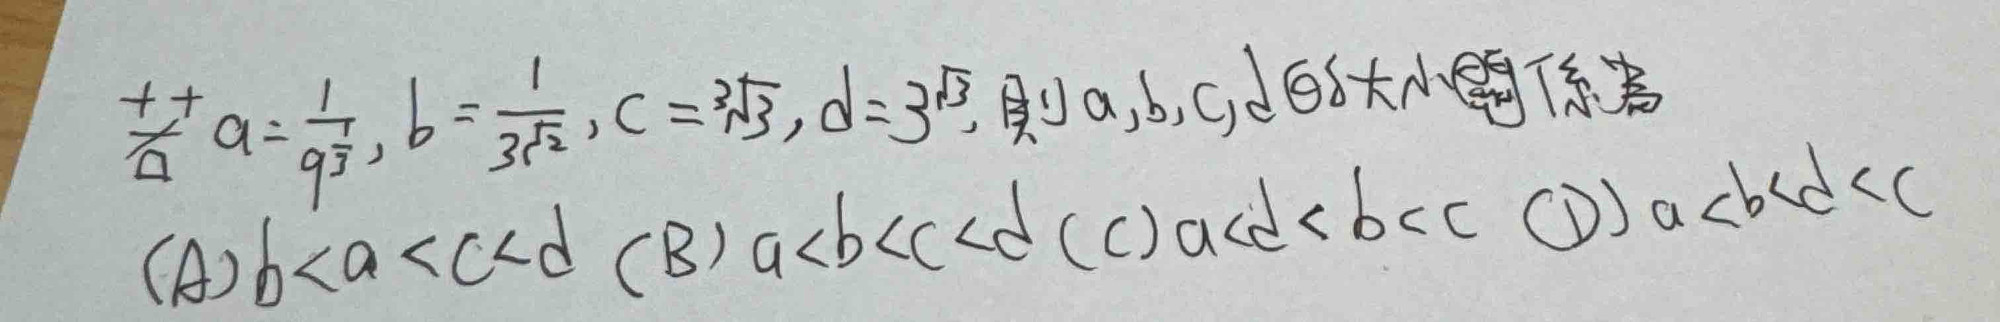 若 a = 1/9^(1/3), b = 1/3^√2, c = ³√3, d = 3^√3, 則 a, b, c, d 的大小關係為
(A) b < a < c < d (B) a < b < c < d (C) a < d < b < c (D) a < b < d < c